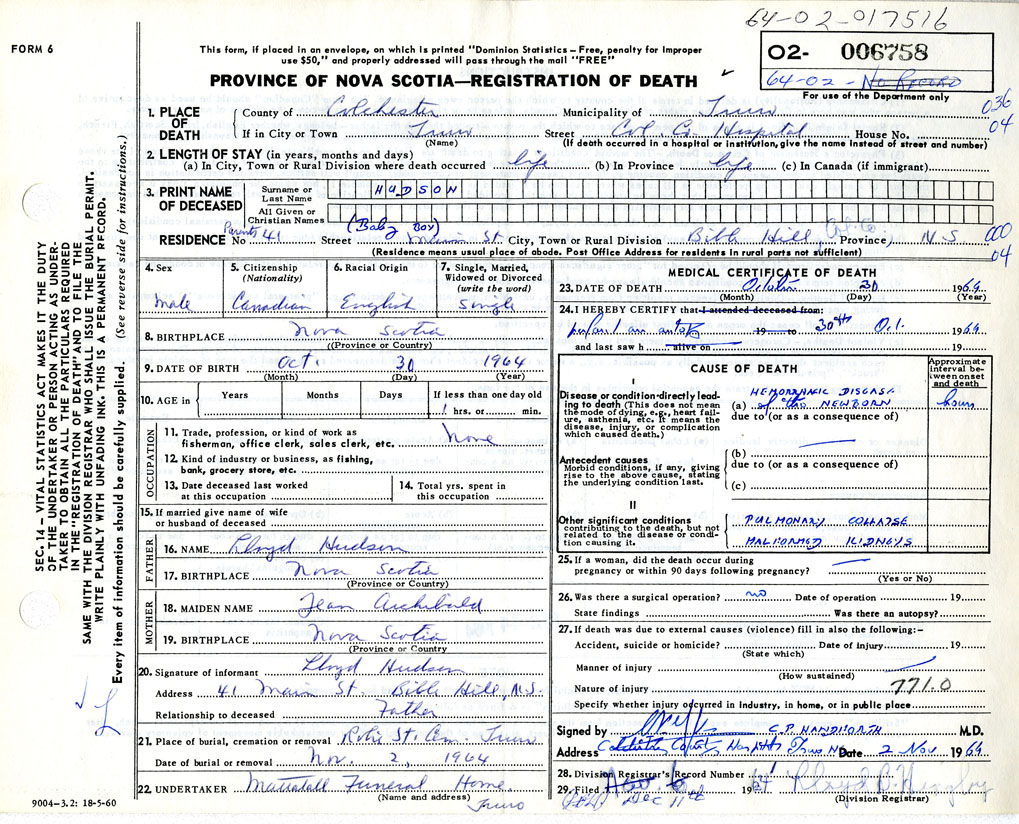 64-02-017516
FORM 6
This form, if placed in an envelope, on which is printed "Dominion Statistics – Free, penalty for improper
use $50," and properly addressed will pass through the mail "FREE"
02- 006758
64-02 - No Record
For use of the Department only
PROVINCE OF NOVA SCOTIA—REGISTRATION OF DEATH
036
04
1. PLACE OF DEATH
County of Colchester Municipality of Truro
If in City or Town Truro Street Col. Co. Hospital House No.
(Name) (If death occurred in a hospital or institution, give the name instead of street and number)
2. LENGTH OF STAY (in years, months and days)
(a) In City, Town or Rural Division where death occurred life (b) In Province life (c) In Canada (if immigrant)
3. PRINT NAME OF DECEASED
Surname or Last Name HUDSON
All Given or Christian Names
(Baby Boy)
RESIDENCE No Parents 41 Street Main St. City, Town or Rural Division Bible Hill, Col. Co. Province) N S
000
04
(Residence means usual place of abode. Post Office Address for residents in rural parts not sufficient)
4. Sex
male
5. Citizenship
(Nationality)
Canadian
6. Racial Origin
English
7. Single, Married,
Widowed or Divorced
(write the word)
Single
8. BIRTHPLACE Nova Scotia
(Province or Country)
9. DATE OF BIRTH Oct. 30 1964
(Month) (Day) (Year)
10. AGE in
Years Months Days If less than one day old
1 hrs. or min.
OCCUPATION
11. Trade, profession, or kind of work as
fisherman, office clerk, sales clerk, etc. None
12. Kind of industry or business, as fishing,
bank, grocery store, etc.
13. Date deceased last worked
at this occupation
14. Total yrs. spent in
this occupation
15. If married give name of wife
or husband of deceased
FATHER
16. NAME Lloyd Hudson
17. BIRTHPLACE Nova Scotia
(Province or Country)
MOTHER
18. MAIDEN NAME Jean Archibald
19. BIRTHPLACE Nova Scotia
(Province or Country
20. Signature of informant Lloyd Hudson
Address 41 Main St. Bible Hill, N.S.
Relationship to deceased Father
21. Place of burial, cremation or removal Robie St. Cem. Truro
Date of burial or removal Nov. 2, 1964
22. UNDERTAKER Mattatall Funeral Home
(Name and address) Truro
MEDICAL CERTIFICATE OF DEATH
23. DATE OF DEATH October 30 1964
(Month) (Day) (Year)
24. I HEREBY CERTIFY that I attended deceased from:
19 to 30th O.t. 1964
and last saw h alive on 19
CAUSE OF DEATH
Approximate
interval be-
tween onset
and death
I
Disease or condition directly lead-
ing to death (This does not mean
the mode of dying, e.g., heart fail-
ure, asthenia, etc. It means the
disease, injury, or complication
which caused death.)
HEMORRHAGIC DISEASE
(a) of the NEWBORN hours
due to (or as a consequence of)
Antecedent causes
Morbid conditions, if any, giving
rise to the above cause, stating
the underlying condition last.
(b)
due to (or as a consequence of)
(c)
II
Other significant conditions
contributing to the death, but not
related to the disease or condi-
tion causing it.
PULMONARY COLLAPSE
MALFORMED KIDNEYS
25. If a woman, did the death occur during
pregnancy or within 90 days following pregnancy?
(Yes or No)
26. Was there a surgical operation? no Date of operation 19
State findings Was there an autopsy?
27. If death was due to external causes (violence) fill in also the following:–
Accident, suicide or homicide? Date of injury 19
(State which)
Manner of injury
(How sustained)
Nature of injury 771.0
Specify whether injury occurred in industry, in home, or in public place
Signed by C.P. HANDFORTH M.D.
Address Colchester County Hospital Truro NS Date 2 Nov 1964
28. Division Registrar's Record Number
29. Filed Dec 11th 1964
(Division Registrar)
9004–3.2: 18-5-60
SEC. 14 – VITAL STATISTICS ACT MAKES IT THE DUTY
OF THE UNDERTAKER OR PERSON ACTING AS UNDER-
TAKER TO OBTAIN ALL THE PARTICULARS REQUIRED
IN THE "REGISTRATION OF DEATH" AND TO FILE THE
SAME WITH THE DIVISION REGISTRAR WHO SHALL ISSUE THE BURIAL PERMIT.
WRITE PLAINLY WITH UNFADING INK. THIS IS A PERMANENT RECORD.
Every item of information should be carefully supplied. (See reverse side for instructions.)